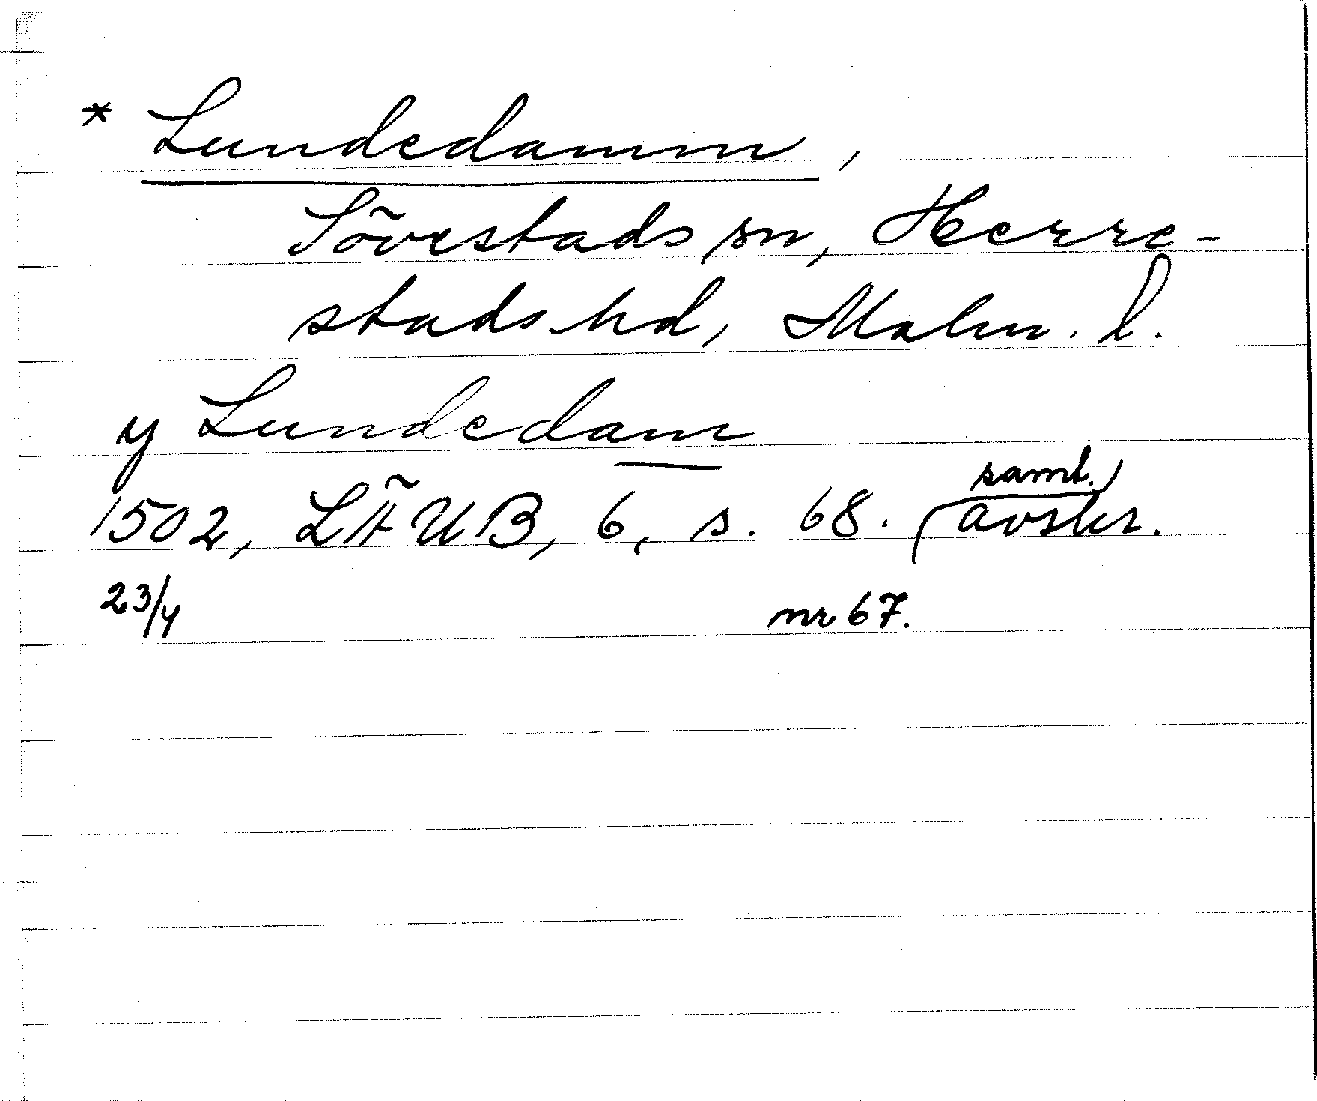 * Lundedamm,
Sövestads sn, Herre-
stads hd, Malm. l.
y Lundedam
1502, LÄUB, 6, s. 68. (samt. avskr.
23/4 nr 67.